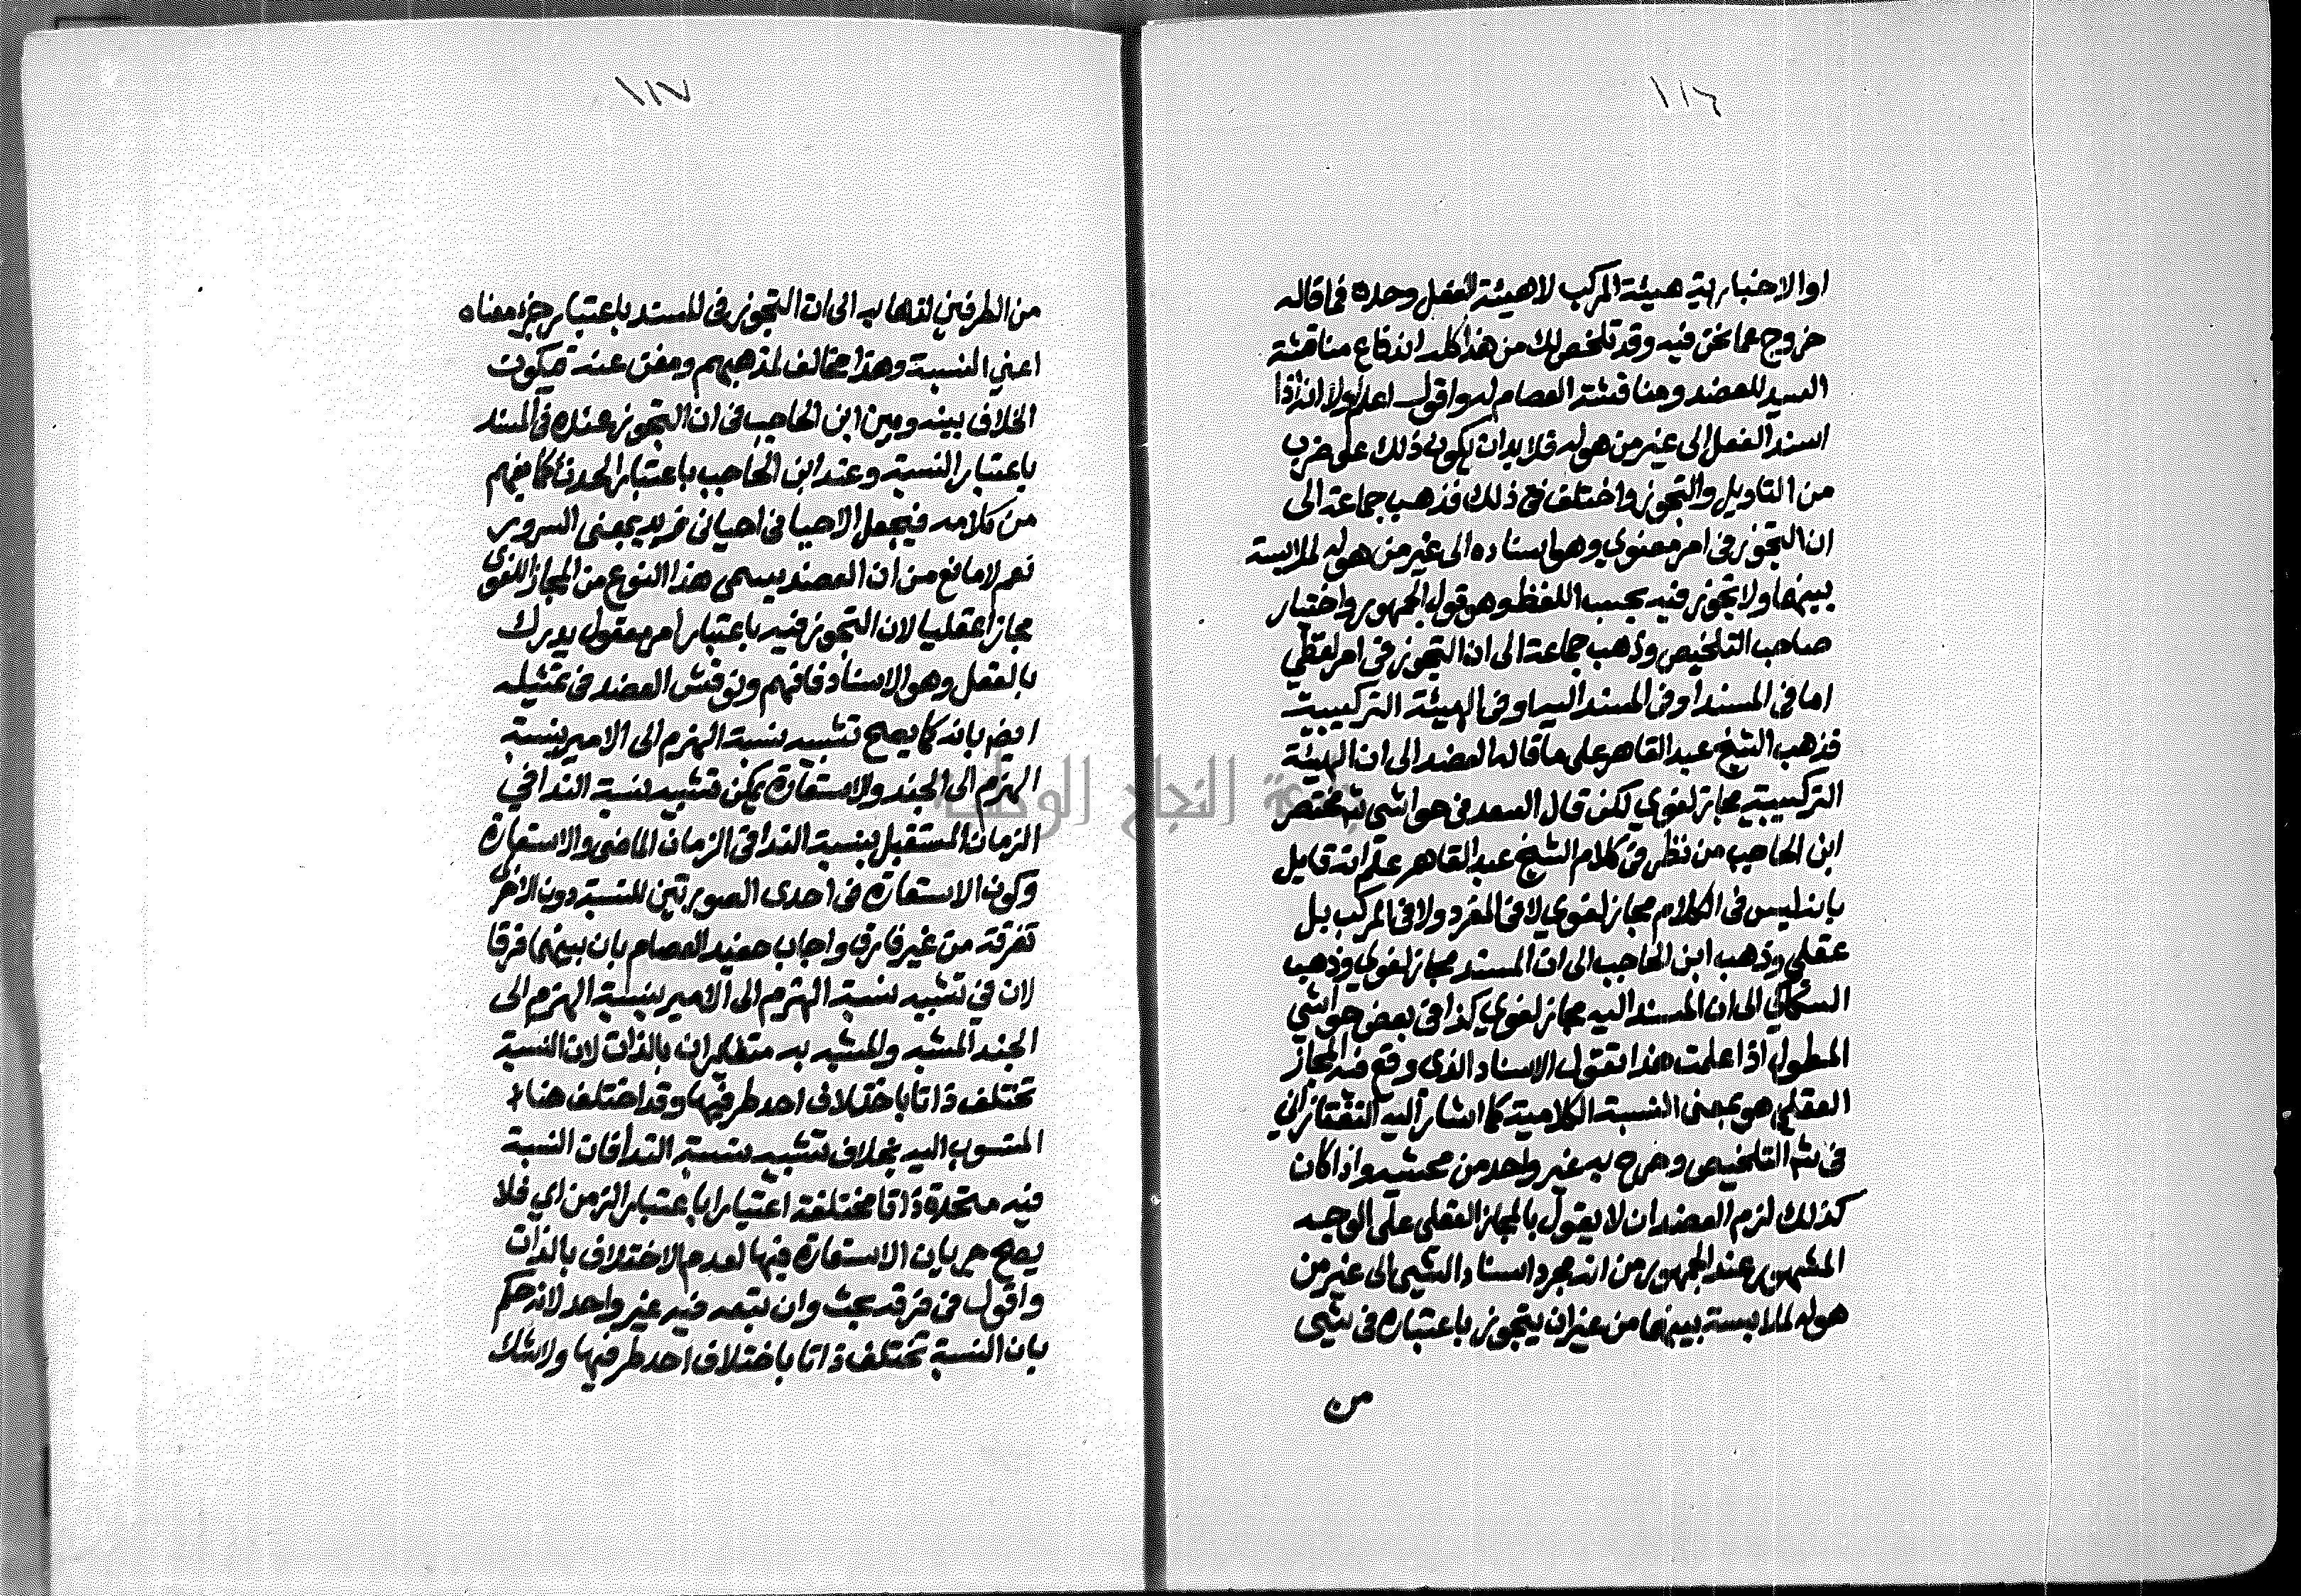 ١١٦
او الاخبارية هيئة المركب لا هيئة الفعل وحده فما قاله
خروج عما نحن فيه وقد تلخص لك من هذا كله اندفاع مناقشة
السيد للعضد ومناقشة العصام له واقول اعلم اولا انه اذا
اسند الفعل الى غير من هو له فلا بد ان يكون ذلك على ضرب
من التاويل والتجوز واختلف في ذلك فذهب جماعة الى
ان التجوز في امر معنوي وهو اسناده الى غير من هو له لملابسة
بينهما ولا تجوز فيه بحسب اللفظ وهو قول الجمهور واختيار
صاحب التلخيص وذهب جماعة الى ان التجوز في امر لفظي
اما في المسند او في المسند اليه او في الهيئة التركيبية
فذهب الشيخ عبد القاهر على ما قاله العضد الى ان الهيئة
التركيبية مجاز لغوي لكن قال السعد في حواشي شم مختصر
ابن الحاجب من نظر في كلام الشيخ عبد القاهر علم انه قايل
بانه ليس في الكلام مجاز لغوي لا في المفرد ولا في المركب بل
عقلي وذهب ابن الحاجب الى ان المسند مجاز لغوي وذهب
السكاكي الى ان المسند اليه مجاز لغوي كذا في بعض حواشي
المطول اذا علمت هذا تقول الاسناد الذي وقع فيه المجاز
العقلي هو بمعنى النسبة الكلامية كما اشار اليه التفتازاني
في شم التلخيص وصرح به غير واحد من محشيه واذا كان
كذلك لزم العضد ان لا يقول بالمجاز العقلي على الوجه
المشهور عند الجمهور من انه مجرد اسناد الشيى الى غير من
هو له لملابسة بينهما من غير ان يتجوز باعتباره في شيى
من
١١٧
من الطرفين لذهابه الى ان التجوز في المسند باعتبار جزء معناه
اعني النسبة وهذا مخالف لمذهبهم ومغن عنه فيكون
الخلاف بينه وبين ابن الحاجب في ان التجوز عنده في المسند
باعتبار النسبة وعند ابن الحاجب باعتبار الحدث كما يفهم
من كلامه فيجعل الاحيا في احياني قربه بمعنى السرور
نعم لا مانع من ان العضد يسمى هذا النوع من المجاز اللغوى
مجازا عقليا لان التجوز فيه باعتبار أمر معقول يدرك
بالعقل وهو الاسناد فافهم ونوقش العضد في تمثيله
ايض بانه كما يصح تشبيه نسبة الهزم الى الامير بنسبة
الهزم الى الجند والاستعارة يمكن تشبيه نسبة الندا في
الزمان المستقبل بنسبة الندا في الزمان الماضي والاستعارة
وكون الاستعارة في احدى الصورتين للنسبة دون الاخرى
تفرقة من غير فارق واجاب حفيد العصام بان بينهما فرقا
لان في تشبيه نسبة الهزم الى الامير بنسبة الهزم الى
الجند المشبه والمشبه به متغايران بالذات لان النسبة
تختلف ذاتا باختلاف احد طرفيها وقد اختلف هنا
المنسوب اليه بخلاف تشبيه نسبة الندا فان النسبة
فيه متحدة ذاتا مختلفة اعتبارا باعتبار الزمن اي فلا
يصح جريان الاستعارة فيها لعدم الاختلاف بالذات
واقول في فرقه بحث وان تبعه فيه غير واحد لانه حكم
بان النسبة تختلف ذاتا باختلاف احد طرفيها ولا شك